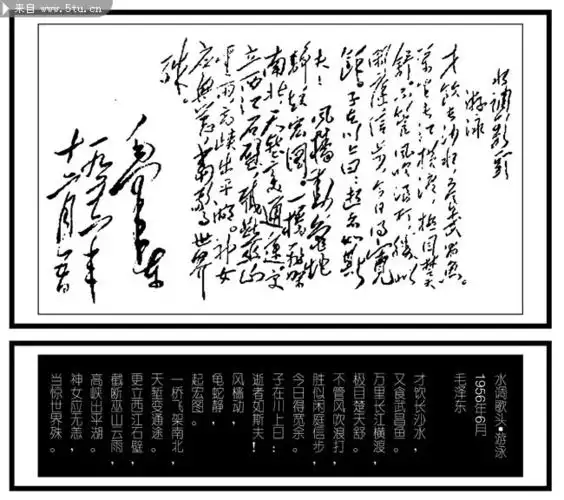 来自 www.5tu.cn
水调歌头
游泳
才飲长沙水，又食武昌鱼。
萬里长江横渡，极目楚天
舒。不管风吹浪打，勝似
闲庭信步，今日得寬
餘。子在川上曰：逝者如斯
夫！风樯动，龟蛇
静，起宏图。一橋飛架
南北，天堑变通途。更
立西江石壁，截断巫山
雲雨，高峡出平湖。神女
应無恙，當驚世界
殊
毛泽东
一九五六年
十二月五日
水调歌头•游泳
1956年6月
毛泽东
才饮长沙水，
又食武昌鱼。
万里长江横渡，
极目楚天舒。
不管风吹浪打，
胜似闲庭信步，
今日得宽余。
子在川上曰：
逝者如斯夫！
风樯动，
龟蛇静，
起宏图。
一桥飞架南北，
天堑变通途。
更立西江石壁，
截断巫山云雨，
高峡出平湖。
神女应无恙，
当惊世界殊。